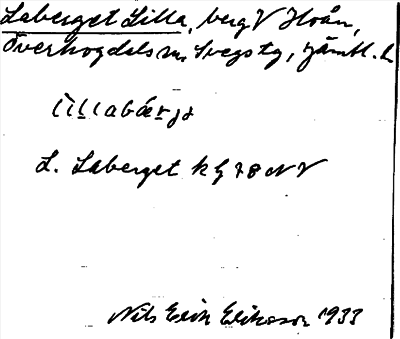 Laberget Lilla, berg V Hoån,
Överhogdals sn, Svegs tg, Jämtl. l.
L. Laberget k ξ 78 N V
Nils Erik Eriksson 1933